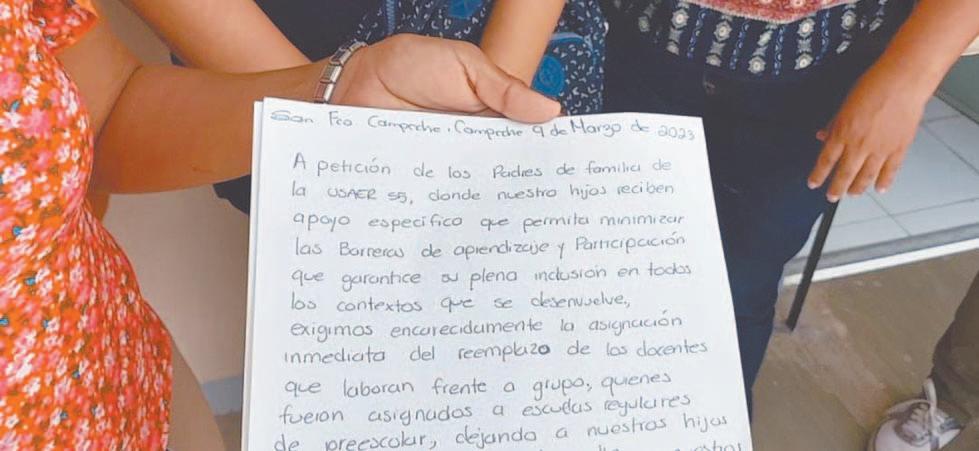 San Fco Campeche, Campeche 9 de Marzo de 2023
A petición de los Padres de familia de
la USAER 55, donde nuestro hijos reciben
apoyo especifico que permita minimizar
las Barreras de aprendizaje y Participación
que garantice su plena inclusión en todos
los contextos que se desenvuelve,
exigimos encarecidamente la asignación
inmediata del reemplazo de los docentes
que laboran frente a grupo, quienes
fueron asignados a escuelas regulares
de preescolar, dejando a nuestros hijos